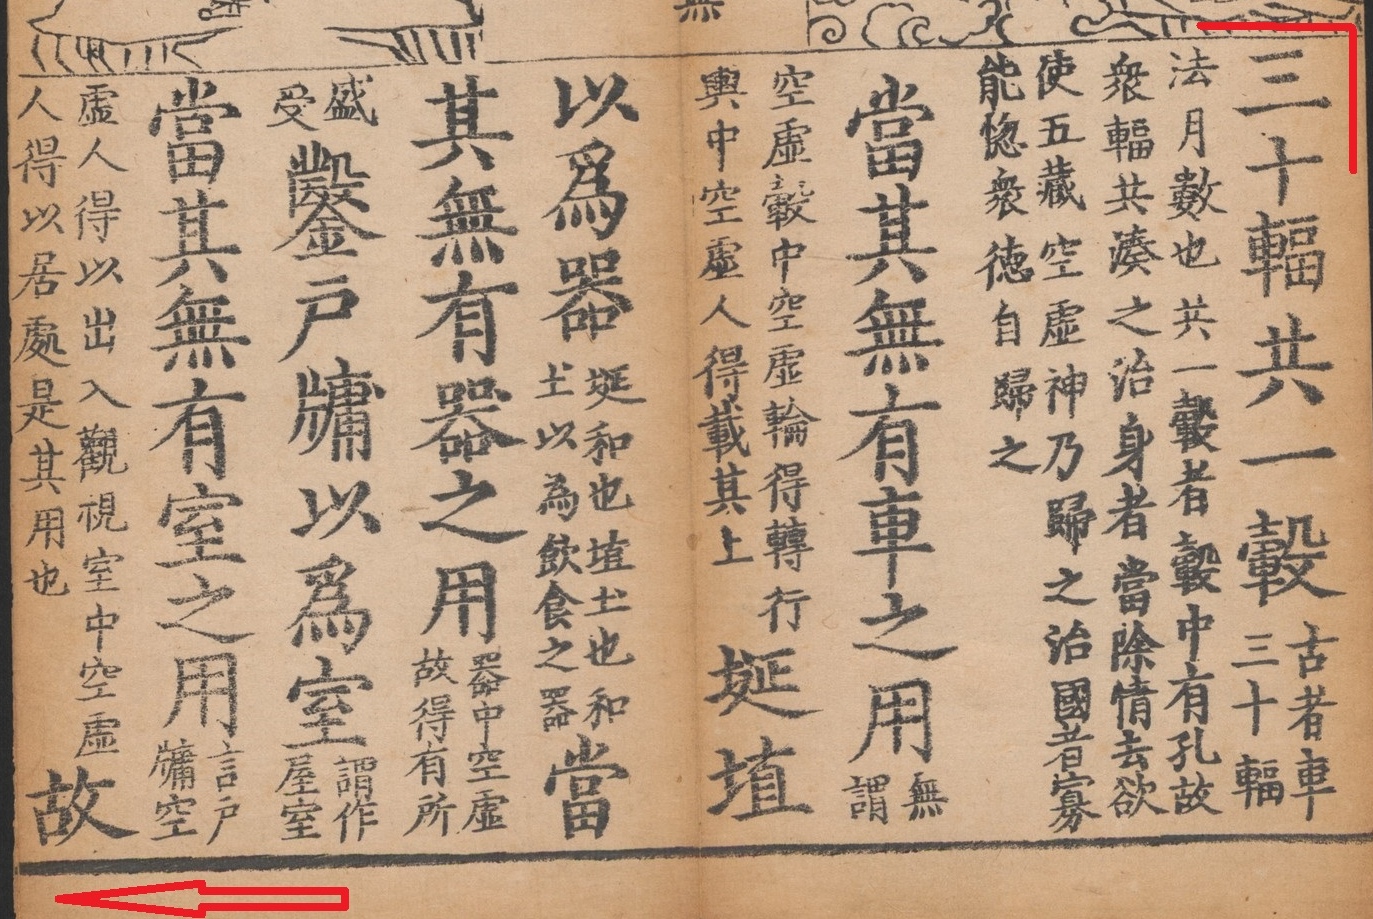 三十輻共一轂古者車三十輻
法月數也共一轂者轂中有孔故
衆輻共湊之治身者當除情去欲
使五藏空虛神乃歸之治國者寡
能惚衆德自歸之
當其無有車之用無謂
空虛轂中空虛輪得轉行
輿中空虛人得載其上埏埴
以爲器埏和也埴圡也和圡以為飲食之器當
其無有器之用器中空虛故得有所
盛受鑿戶牖以爲室謂作屋室
當其無有室之用言戶牖空
虛人得以出入觀視室中空虛
人得以居處是其用也故